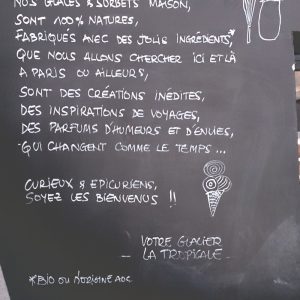 NOS GLACES & SORBETS MAISON,
SONT 100% NATURES,
FABRIQUÉS AVEC DES JOLIS INGRÉDIENTS,*
QUE NOUS ALLONS CHERCHER ICI ET LÀ
A PARIS OU AILLEURS,
SONT DES CRÉATIONS INÉDITES,
DES INSPIRATIONS DE VOYAGES,
DES PARFUMS D'HUMEURS ET D'ENVIES,
QUI CHANGENT COMME LE TEMPS...
CURIEUX & EPICURIENS,
SOYEZ LES BIENVENUS !!
VOTRE GLACIER
- LA TROPICALE -
*BIO OU D'ORIGINE AOC